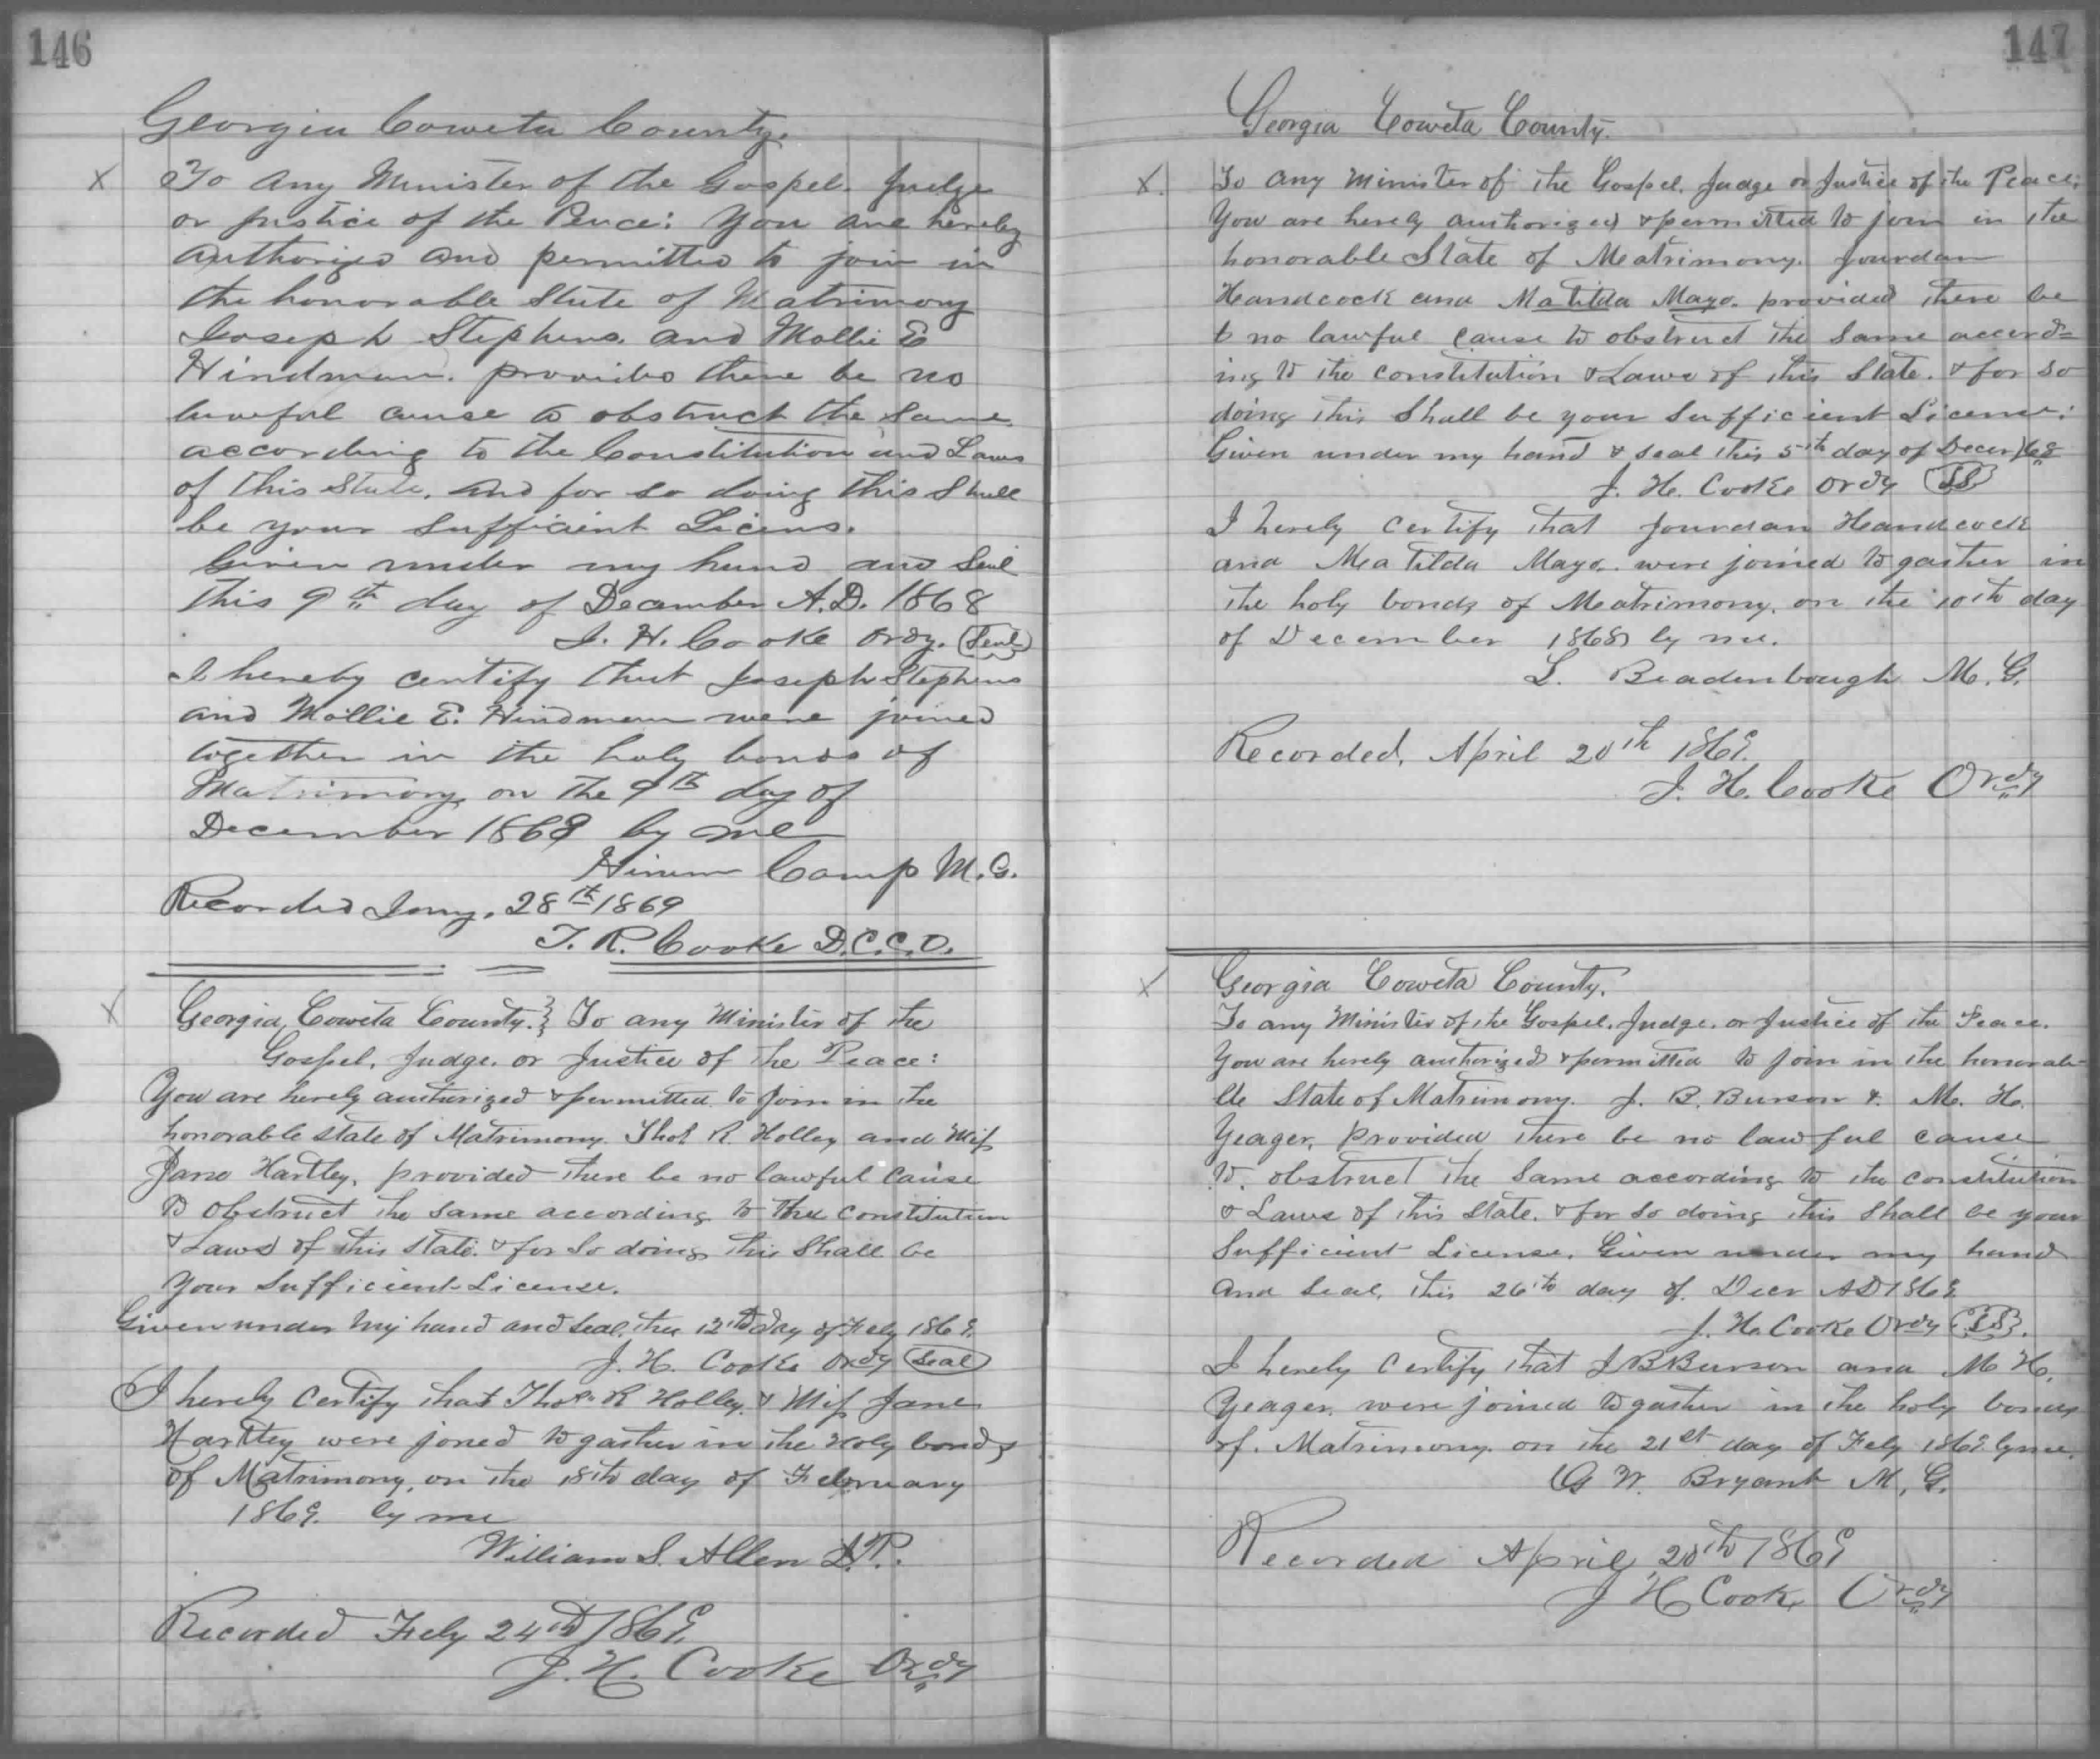 146
Georgia Coweta County.
X To any Minister of the Gospel. Judge
or Justice of the Peace: You are hereby
authorized and permitted to join in
the honorable State of Matrimony
Joseph Stephens. and Mollie E
Hindman. provided there be no
lawful cause to obstruct the same
according to the Constitution and Laws
of this State. and for so doing this Shall
be your sufficient Licens.
Given under my hand and Seal
this 9th day of December A.D. 1868
J. H. Cooke Ordy. Seal
I hereby certify that Joseph Stephens
and Mollie E. Hindman were joined
together in the holy bonds of
Matrimony on the 9th day of
December 1868 by me
Hiram Camp M.G.
Recorded Jany. 28th 1869
T. R. Cooke D.C.C.O.
X Georgia, Coweta County. } To any Minister of the
Gospel. Judge. or Justice of the Peace:
You are hereby authorized & permitted to join in the
honorable state of Matrimony. Thos R. Holley and Miss
Jane Hartley, provided there be no lawful cause
to obstruct the same according to the constitution
& Laws of this state. & for so doing this shall be
your sufficient License.
Given under my hand and seal, this 12th day of Feby 1869.
J. H. Cooke Ordy Seal
I hereby certify that Thos R Holley. & Miss Jane
Hartley were joned to gather in the Holy bonds
of Matrimony, on the 18th day of February
1869. by me
William S. Allen J.P.
Recorded Feby 24th 1869.
J. H. Cooke Ordy
147
Georgia Coweta County.
X. To any Minister of the Gospel, Judge or Justice of the Peace;
You are hereby authorized & permitted to join in the
honorable State of Matrimony. Jourdan
Handcock and Matilda Mayo. provided there be
t no lawful cause to obstruct the same accord=
ing to the constitution & Laws of this State. & for so
doing this Shall be your sufficient License:
Given under my hand & seal this 5th day of Decer /68
J. H. Cooke Ordy LS
I hereby certify that Jourdan Handcock
and Matilda Mayo. were joined to gather in
the holy bonds of Matrimony. on the 10th day
of December 1868 by me.
L. Beadenbough M. G.
Recorded, April 20th 1869.
J. H. Cooke Ordy
X Georgia Coweta County.
To any Minister of the Gospel. Judge. or Justice of the Peace.
You are hereby authorized & permitted to join in the honorab-
ble State of Matrimony. J. B. Burson & M. H.
Yeager, provided there be no lawful cause
to. obstruct the same according to the constitution
& Laws of this State. & for so doing this shall be your
sufficient License. Given under my hand
and seal, this 26th day of. Decr AD 1868
J. H. Cooke Ordy LS.
I hereby certify that J B Burson and M H.
Yeager. were joined to gather in the holy bonds
of. Matrimony. on the 21st day of Feby 1869. by me.
G W. Bryant M. G.
Recorded April 20th 1869
J H Cooke Ordy